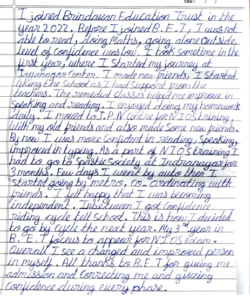 I joined Brindavan Education Trust in the
year 2022. Before I joined B.E.T, I was not
able to read, doing Maths, going alone outside,
level of confidence was low. I took sometime in the
first year, where I started my journey at
Jayanagar Center. I made new friends. I started
liking the school as I had support from the
teachers. The remedial classes helped me improve in
speaking and reading. I enjoyed doing my homework
daily. I moved to J.P.N Centre for NIOS training,
with my old friends and also made some new friends.
By now I was more confident in reading, speaking,
improved in typing. As a part of NIOS training I
had to go to Spastic Society at Indranagar for
3 months. Few days I went by auto then I
started going by metro, co-ordinating with
friends. I felt happy that I was becoming
independent. Inbetween I got confidence
riding cycle till school. This is how I decided
to go by cycle the next year. My 3rd year in
B.E.T focus to appear for NIOS exam.
Overall I see a changed and improved person
in myself. All thanks to B.E.T for giving me
admission and correcting me and giving
confidence during every phase.